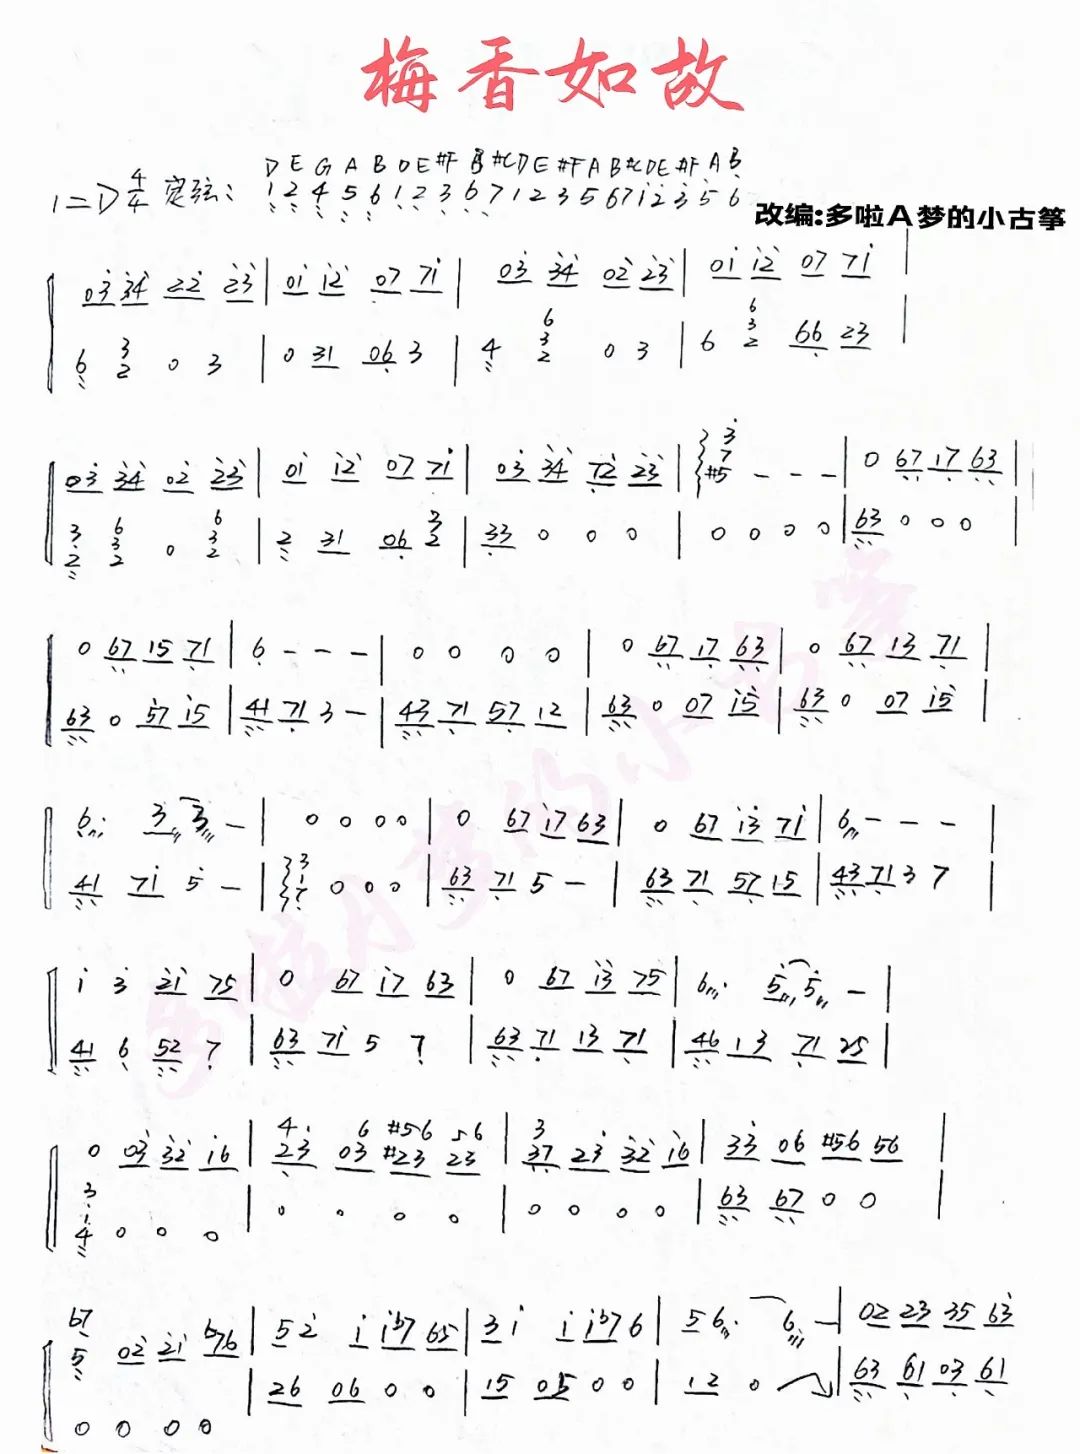 梅香如故
D E G A B D E #F B #C D E #F A B #C D E #F A B
1=D 4/4 定弦: 1 2 4 5 6 1 2 3 6 7 1 2 3 5 6 7 1 2 3 5 6
改编:多啦A梦的小古筝
03 34 22 23 | 01 12 07 71 | 03 34 02 23 | 01 12 07 71 |
6 3 2 0 3 | 0 31 06 3 | 4 6 3 2 0 3 | 6 6 3 2 66 23 |
03 34 02 23 | 01 12 07 71 | 03 34 72 23 | 3 7 #5 - - - | 0 67 17 63 |
3 2 6 3 2 0 6 3 2 | 2 31 06 3 2 | 33 0 0 0 | 0 0 0 0 | 63 0 0 0 |
0 67 15 71 | 6 - - - | 0 0 0 0 | 0 67 17 63 | 0 67 13 71 |
63 0 57 15 | 41 71 3 - | 43 71 57 12 | 63 0 07 15 | 63 0 07 15 |
6. 3 3 - | 0 0 0 0 | 0 67 17 63 | 0 67 13 71 | 6 - - - |
41 71 5 - | 3 1 7 0 0 0 | 63 71 5 - | 63 71 57 15 | 43 71 3 7 |
1 3 21 75 | 0 67 17 63 | 0 67 13 75 | 6. 5 5 - |
41 6 52 7 | 63 71 5 7 | 63 71 13 71 | 46 13 71 25 |
0 03 32 16 | 4. 23 6 03 #56 #23 56 23 | 3 37 23 32 16 | 33 06 #56 56 |
3 1 4 0 0 0 | 0 0 0 0 | 0 0 0 0 | 63 67 0 0 |
b7 5 02 21 b76 | 52 1 1b7 65 | 31 1 1b7 6 | 56. 6 - | 02 23 35 63
0 0 0 0 | 26 06 0 0 | 15 05 0 0 | 12 0 | 63 61 03 61
多啦A梦的小古筝